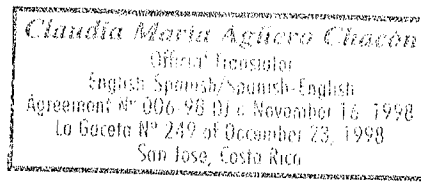 Claudia María Agüero Chacón
Official Translator
English-Spanish/Spanish-English
Agreement Nº 006-98 DJ November 16, 1998
La Gaceta Nº 249 of December 23, 1998
San Jose, Costa Rica